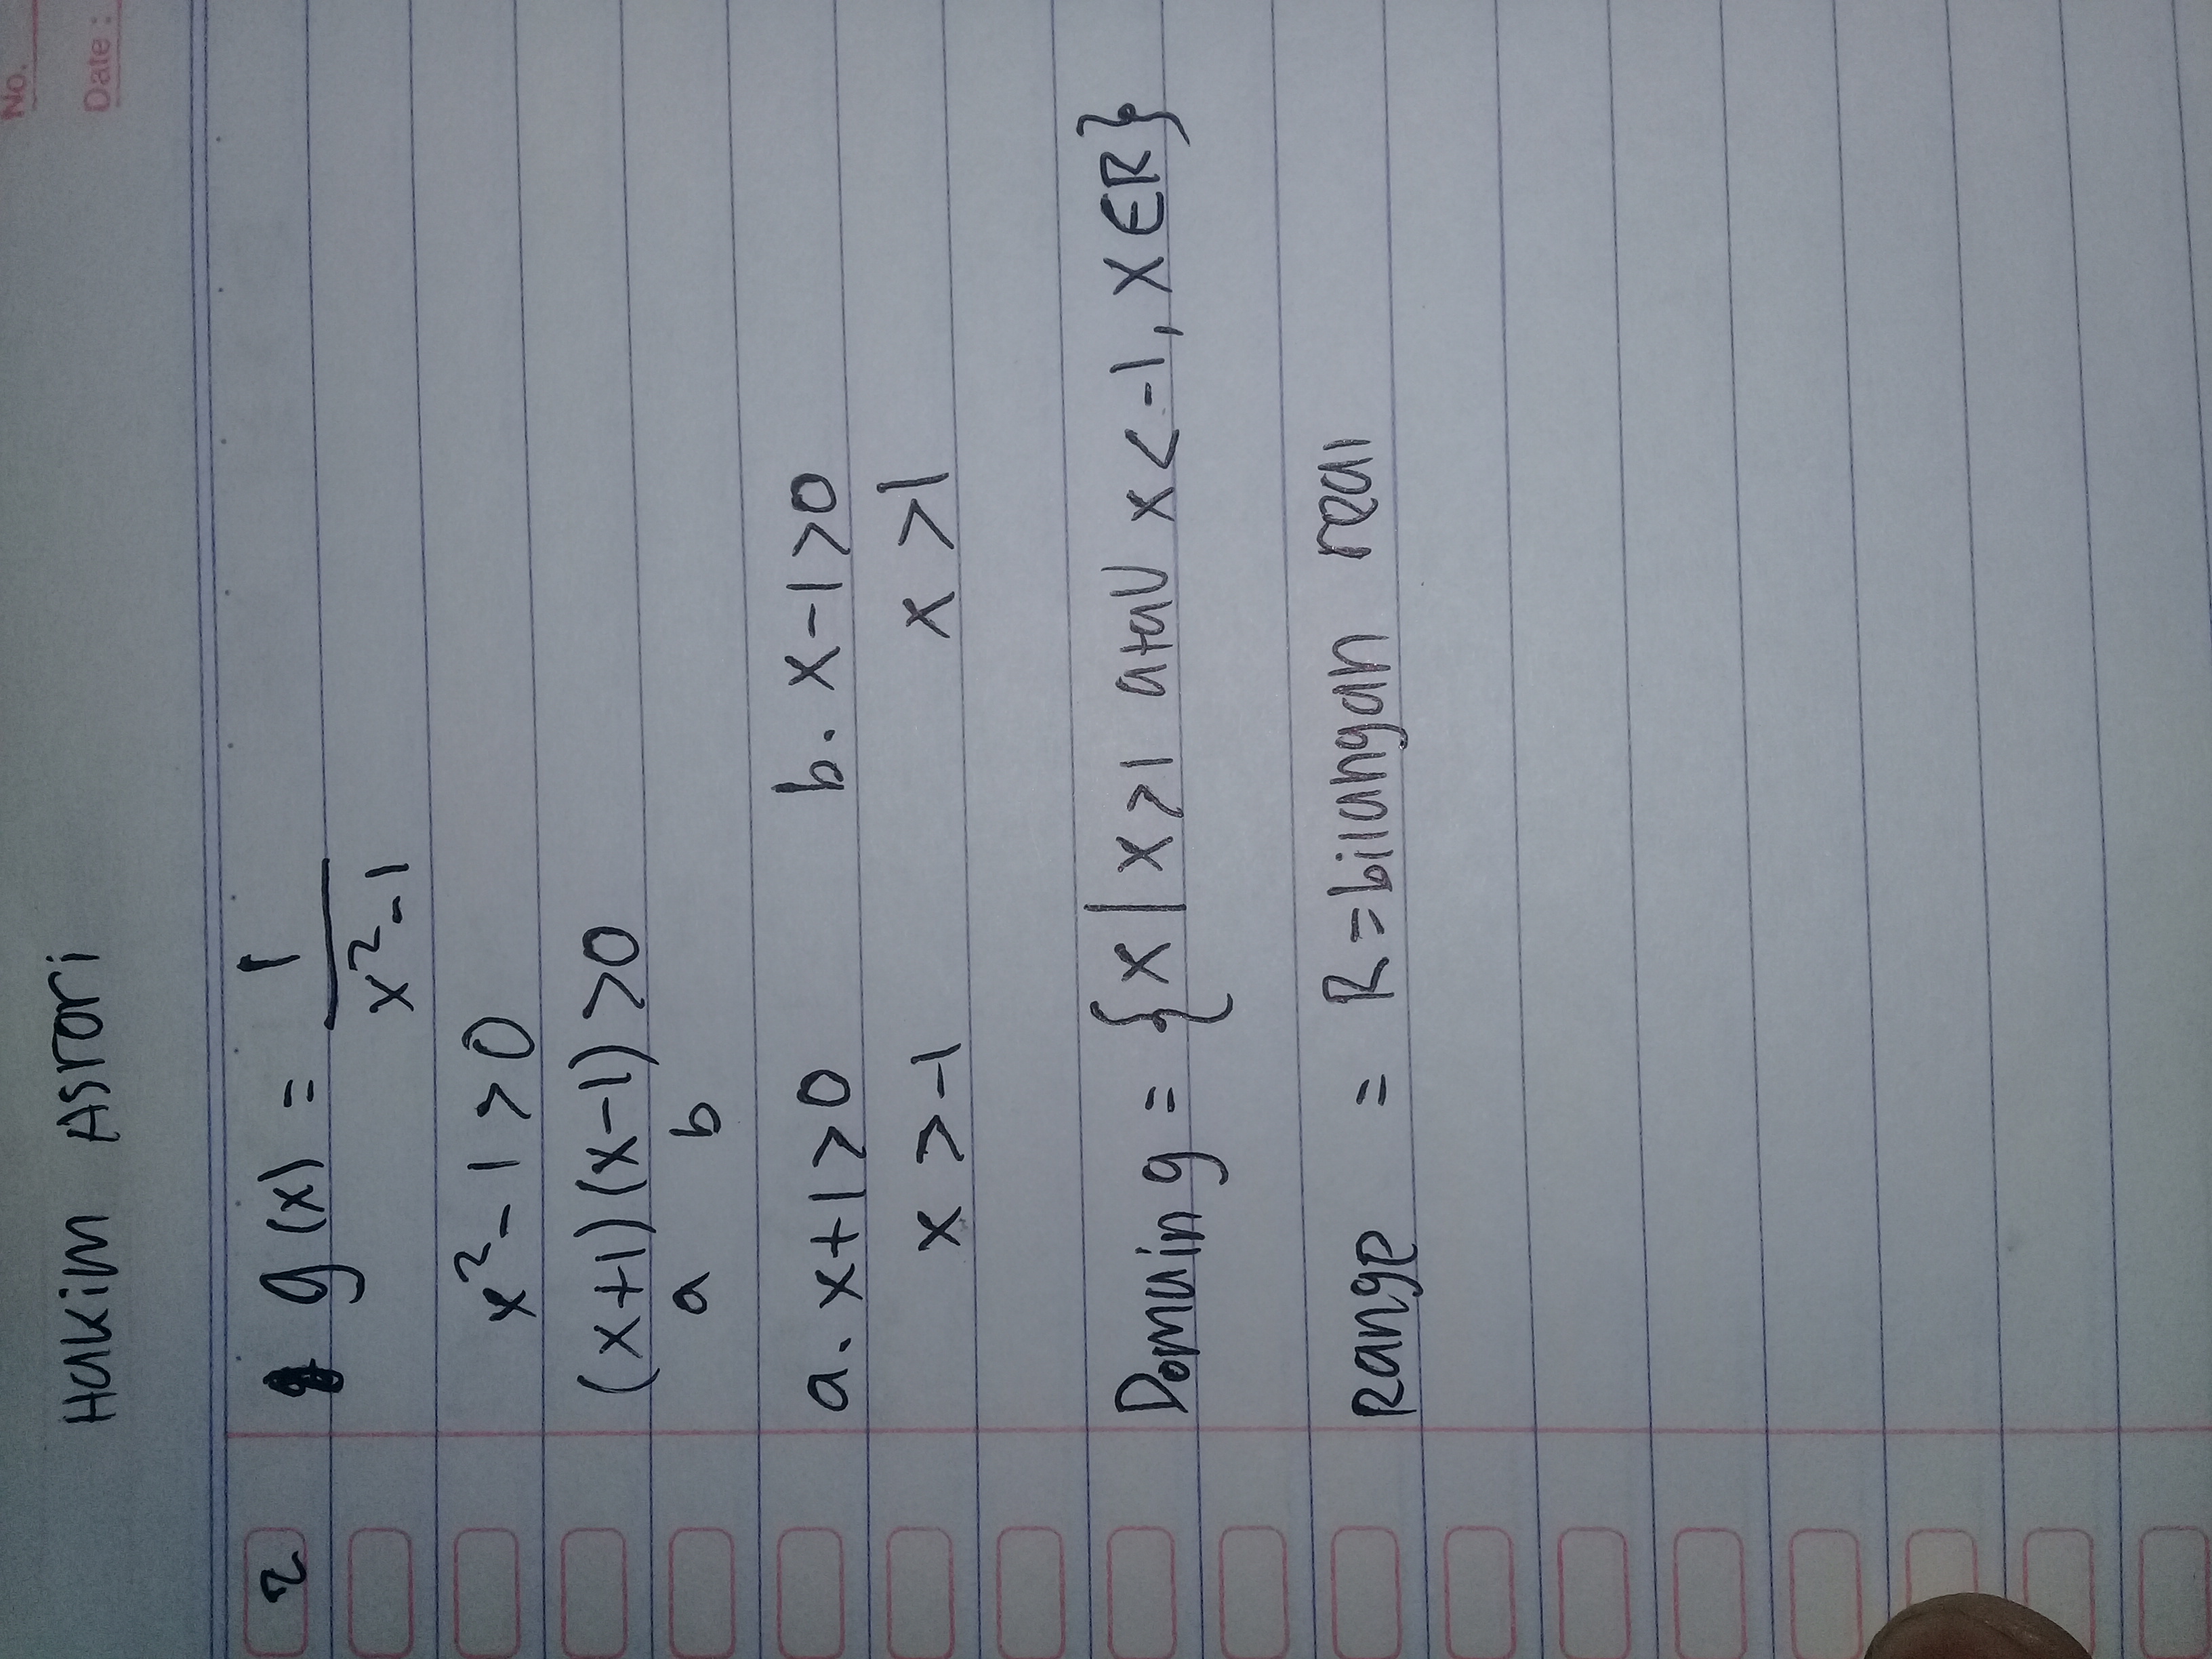 No.
Date :
Hakim Asrori
2 g(x) = 1/x²-1
x² - 1 > 0
(x+1)(x-1) > 0
a b
a. x+1 > 0 b. x-1 > 0
x > -1 x > 1
Domain g = {x | x > 1 atau x < -1, x ∈ R}
Range = R = bilangan real